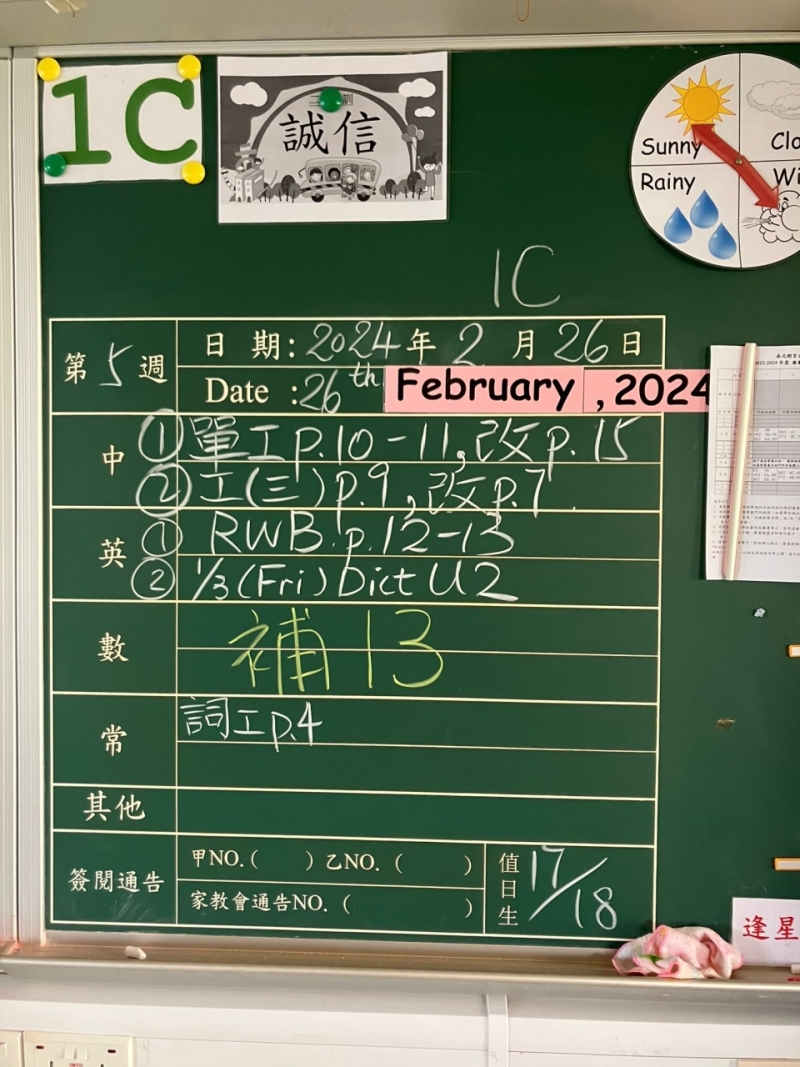 1C
誠信
Sunny
Rainy
1C
第5週
日期:2024年2月26日
Date :26th February ,2024
中
①單工p.10-11,改p.15
②工(三)p.9,改p.7
英
① RWB.p.12-13
② 1/3(Fri) Dict U2
數
補13
常
詞工p.4
其他
簽閱通告
甲NO.( ) 乙NO. ( )
家教會通告NO. ( )
值日生
17/18
逢星